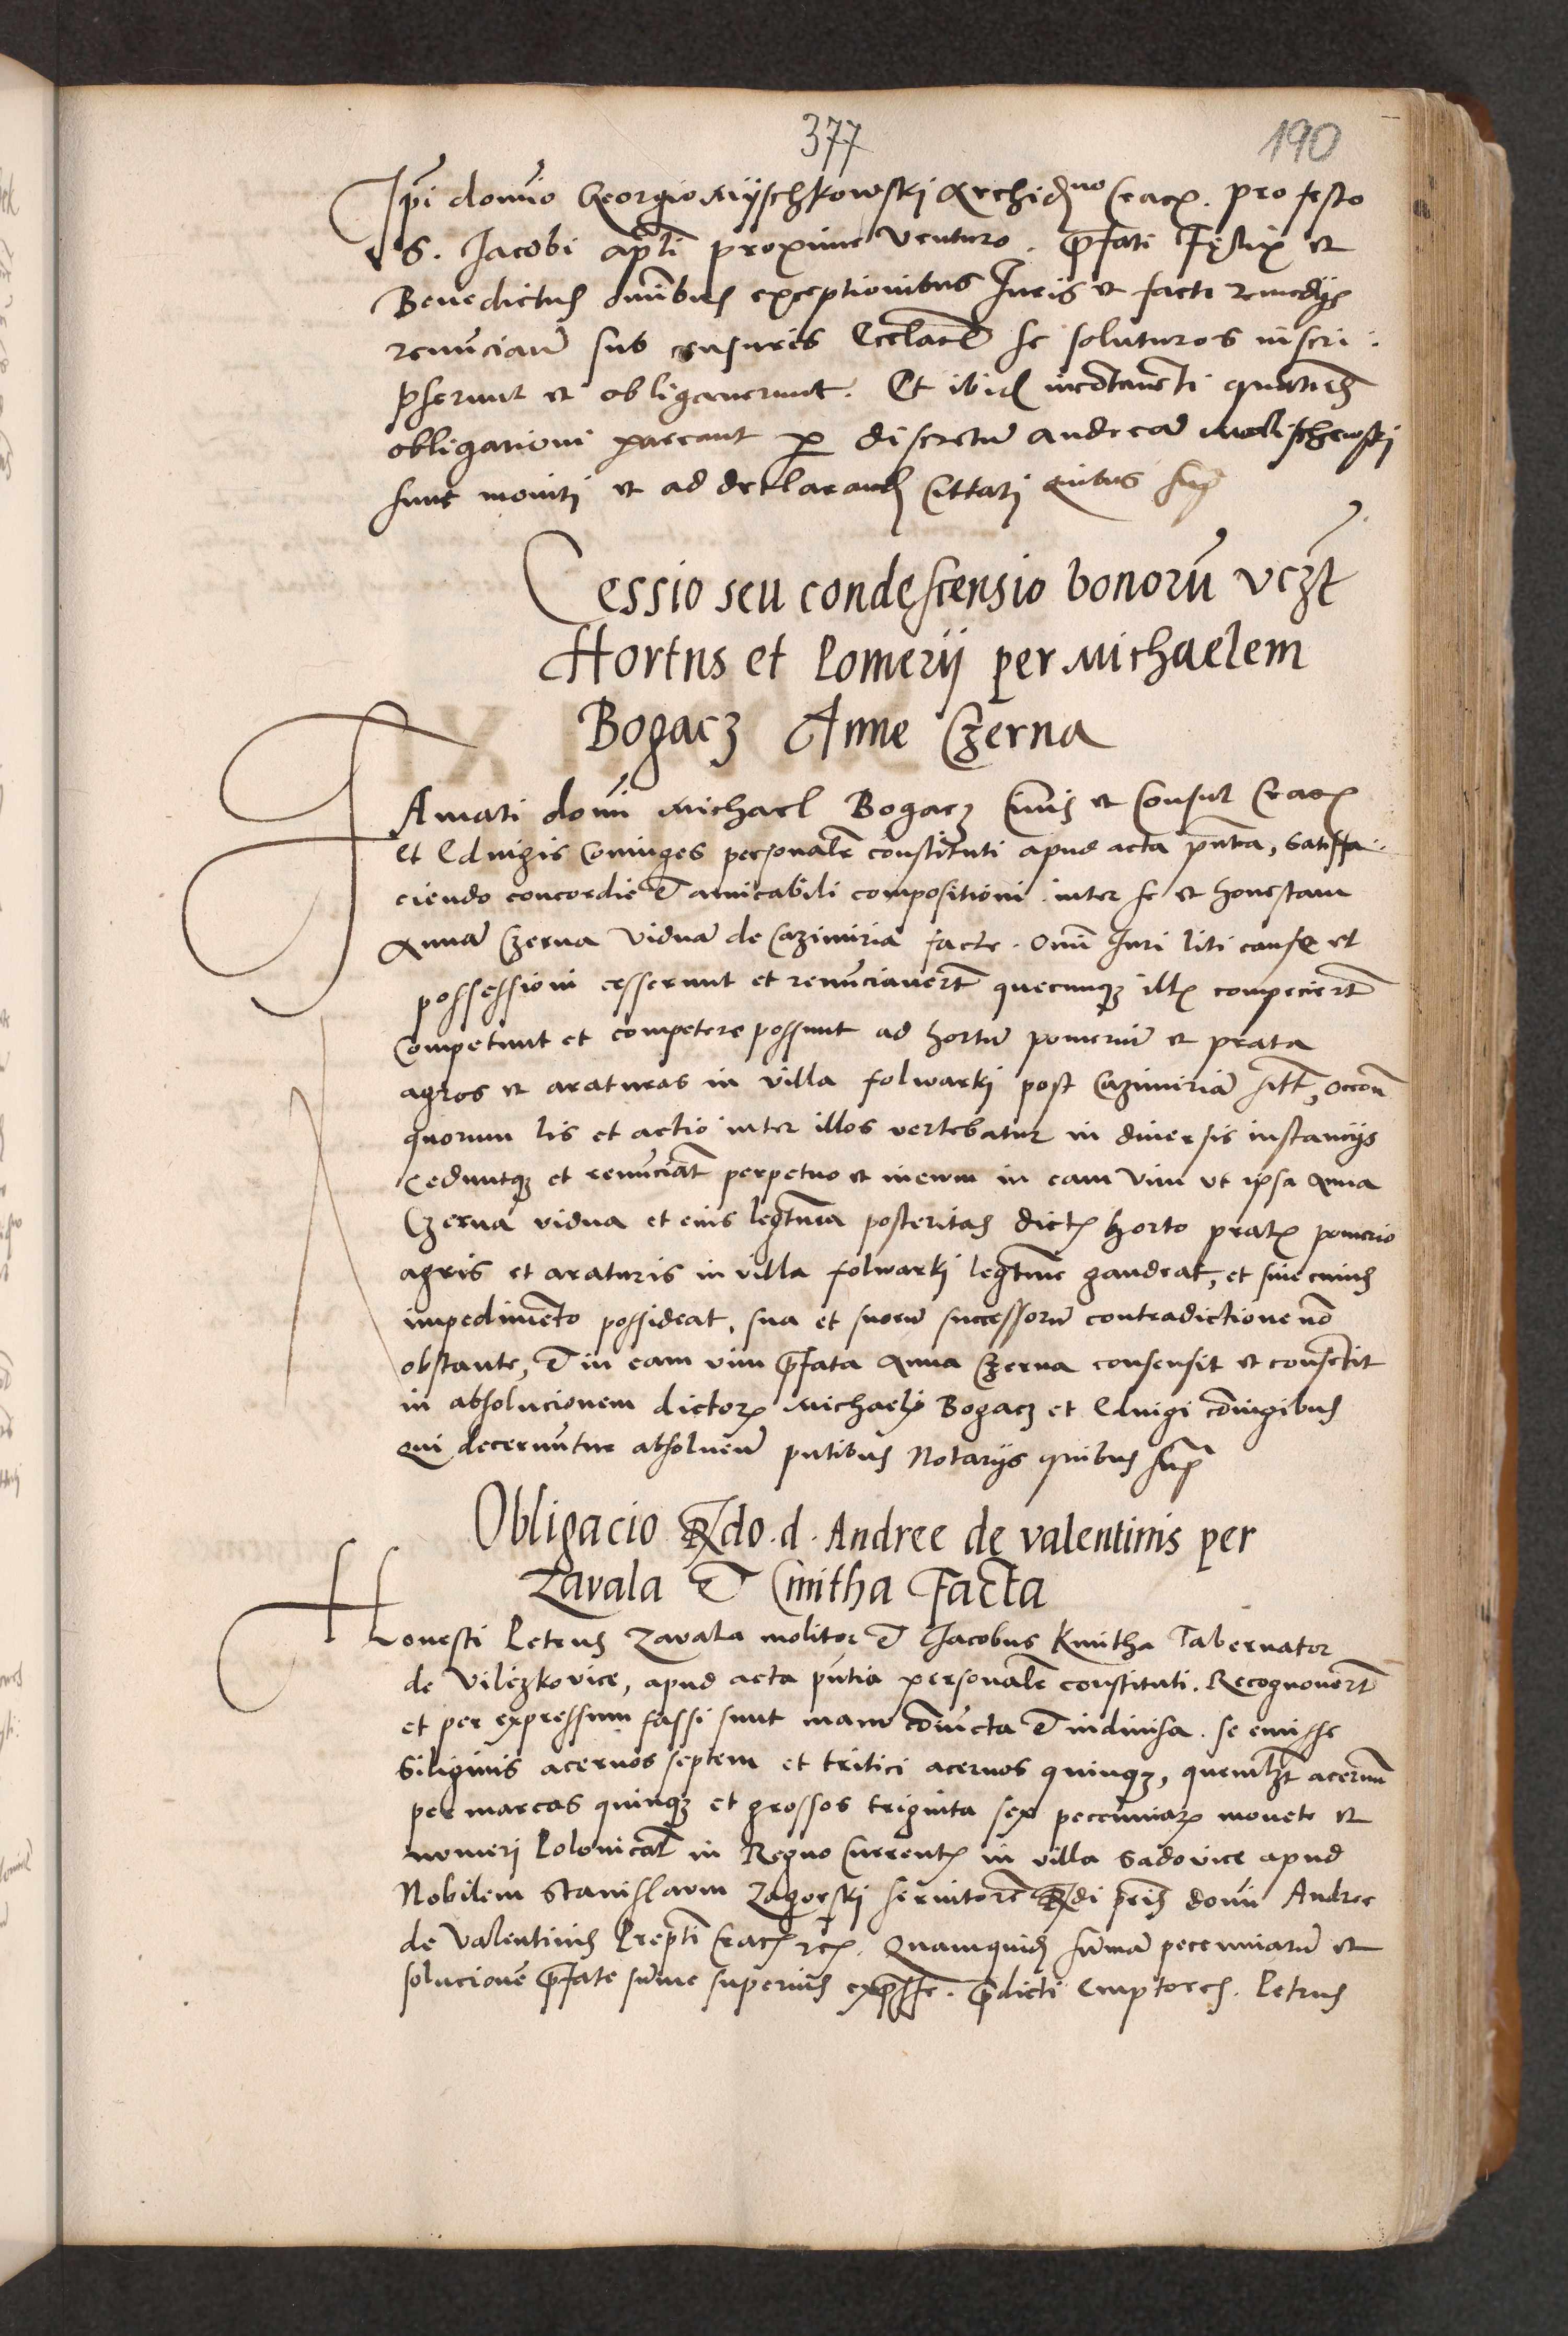 377
190
Ip̄i domīo Georgio Myschkowski Archid̄no Crac̄. pro festo
S. Jacobi ap̄li proxime venturo. p̄fati Felix et
Benedictus om̄ibus exceptionibus Juris et facti remedijs
renūciaṇ̄ sub censuris Eccl̄aꝝ se soluturos inscri:
pserunt et obligaverunt. Et ibid̄ incōtinenti quaten̄
obligationi pareant p̱ discretū andreā
sunt moniti et ad declarand̄ Cittati quibus sup̄
Cessio seu condescensio bonorū vcꝫt
Hortus et Pomerij per Michaelem
Bogacz Anne Czerna
Famati domī Michael Bogacz Civis et Consul Crac̄
et Edvigis Coniuges personalr̄ constituti apud acta pn̄tia, satisfa:
ciendo concordie & amicabili compositioni inter se et honestam
Annā Czerna viduā de Cazimiria facte. om̄i Juri liti cause et
possessioni cesserunt et renūciavert̄ quecunqꝫ illis competiert̄
Competunt et competere possunt ad hortū pomeriū et prata
agros et araturas in villa folwarki post Cazimiriā sitt̄, occōne
quorum lis et actio inter illos vertebatur in diversis instancijs
Ceduntqꝫ et renūciāt perpetuo et in evm in eam vim vt ipsa Anna
Czerna vidua et eius legt̄ima posteritas dictis horto pratis pomerio
agris et araturis in villa folwarki legt̄ime gaudeat, et sine cuius
impedimēto possideat, sua et suorū successorū contradictione nō
obstante, & in eam vim p̄fata Anna Czerna consensit et consētit
in absolucionem dictorꝝ Michaelis Bogacz et Edvigi cōiugibus
Qui decernūtur absolvenḍ̄ pn̄tibus Notarijs quibus sup̄
Obligacio Rdo. d. Andree de valentinis per
Zavala & Cmitha Facta
Honesti Petrus Zavala molitor & Jacobus Kmitha Tabernator
de Viliczkovice, apud acta pn̄tia personalr̄ constituti. Recognovert̄
et per expressum fassi sunt manu cōiuncta & indivisa. se emisse
Siliginis acervos septem et tritici acervos quinqꝫ, quemlꝫt acervū
per marcas quinqꝫ et grossos triginta sex pecuniarꝝ monete et
numeri Polonicał in Regno Currentis in villa Sadovice apud
Nobilem Stanislaum Zagorski servitorē Rdi pris domī Andree
de Valentinis Prep̄ti Crac̄ etc. Quamquid̄ sūmā pecuniarū et
solucionē p̄fate sūme superius exp̄sse. p̄dicti Emptores. Petrus